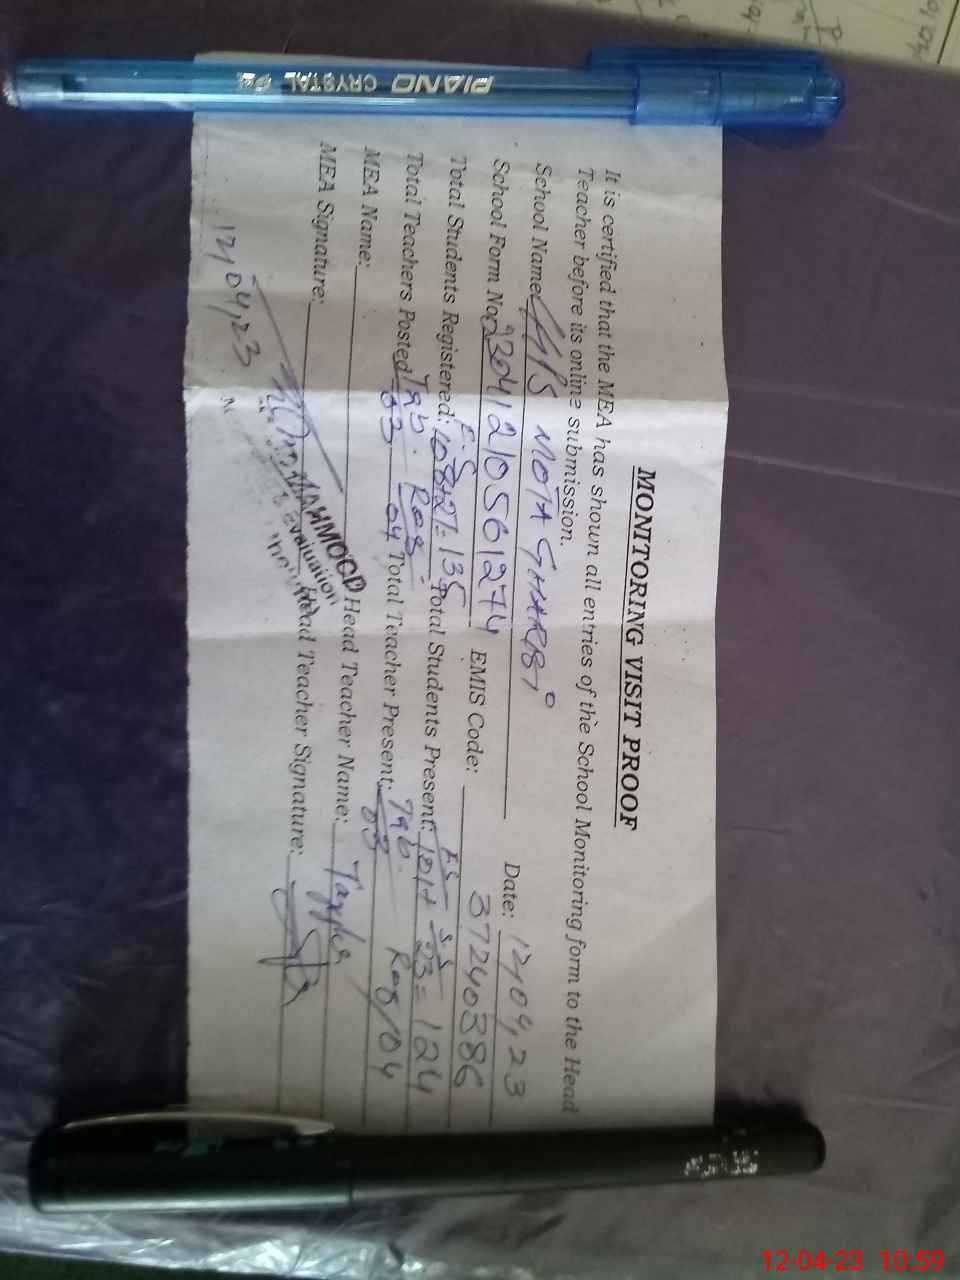 MONITORING VISIT PROOF
It is certified that the MEA has shown all entries of the School Monitoring form to the Head
Teacher before its online submission.
School Name: MOTA GHARBI Date: 12,04,23
School Form No: 2304121056 1274 EMIS Code: 37240386
E.S E.S S.S
Total Students Registered: 108+27=135 Total Students Present: 101+23=124
Reg. Reg/04
Total Teachers Posted 03 04 Total Teacher Present: 03
MEA Name: MAHMOOD Head Teacher Name:
Evaluation
MEA Signature: Head Teacher Signature:
12,04,23
PIANO CRYSTAL
12-04-23 10:59